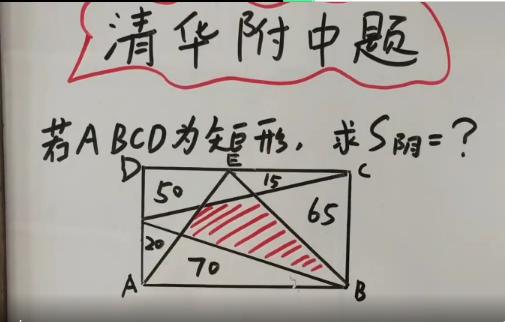 清华附中题
若ABCD为矩形，求S阴=？
D E C
50 15
65
20
70
A B